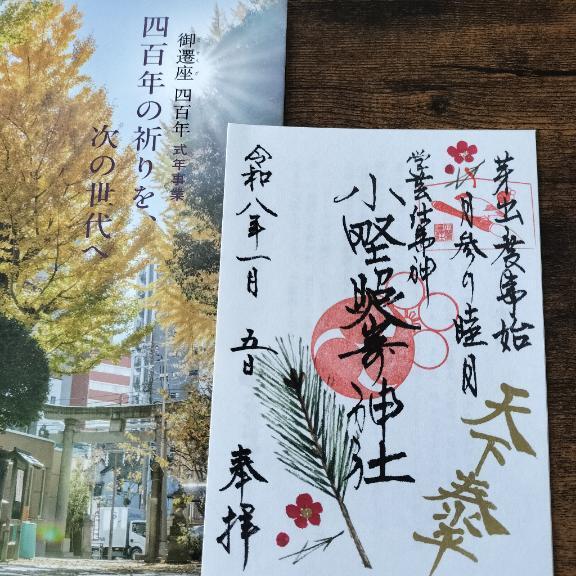 御遷座 四百年 式年事業
四百年の祈りを、
次の世代へ
芽出度事始
月参り 睦月
学芸仕事神
小野照崎神社
天下泰平
令和八年一月 五日
奉拝